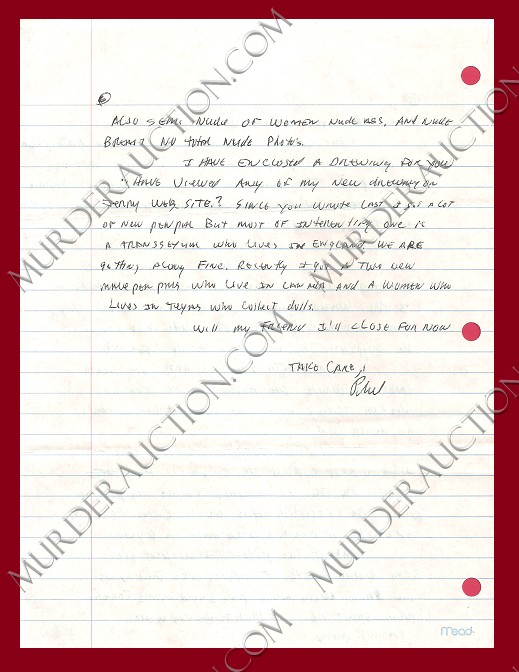 6
ALSO SEMI NUDE OF WOMEN NUDE ASS, AND NUDE
BREAST NO total NUDE Photo's.
I HAVE ENCLOSED A DREWING FOR YOU
HAVE VIEWED ANY OF my NEW DREWING ON
WEB SITE? SINCE YOU WROTE LAST I A LOT
OF NEW PENPAL BUT MOST OF INTERESTING ONE IS
A TRANSSEXUAL WHO LIVES IN ENGLAND WE ARE
getting ALONG FINE. RECENTLY I got TWO NEW
MALE PENPALS WHO LIVE IN CANADA AND A WOMEN WHO
LIVES IN TEXAS WHO COLLECT dolls.
WELL my FRIEND I'LL CLOSE FOR NOW
TAKE CARE,
Phil
Mead
MURDERAUCTION.COM
MURDERAUCTION.COM
MURDERAUCTION.COM
MURDERAUCTION.COM